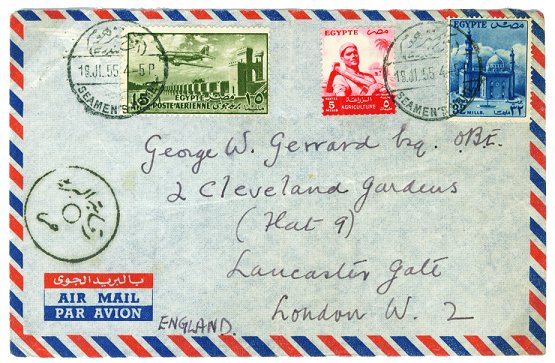 19.JL.55.4-5P
SEAMEN'S
EGYPTE
POSTE AÉRIENNE
٣٥
EGYPTE مصر
POSTES
5 MILLS
الزراعة
AGRICULTURE
٥
19.JL.55.4-5P
SEAMEN'S
EGYPTE مصر
MILLS.
٣٢
George W. Gerrard Esq. OBE.
2 Cleveland Gardens
(Flat 9)
Lancaster Gate
London W. 2
ENGLAND.
بالبريد الجوى
AIR MAIL
PAR AVION